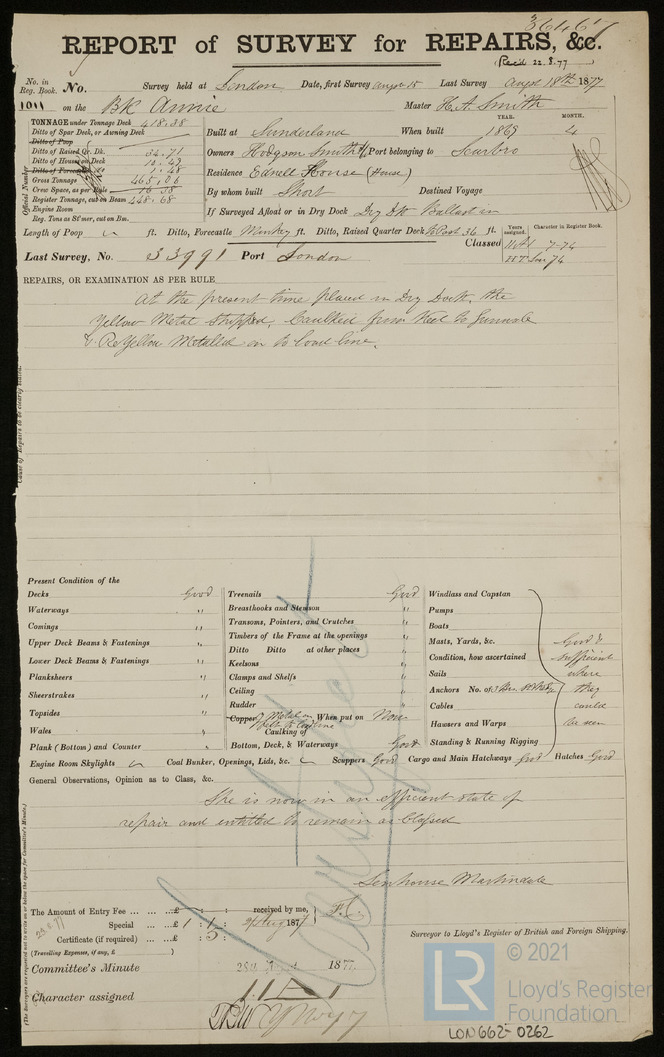 36467
REPORT of SURVEY for REPAIRS, &c.
Rec'd 22.8.77
No. in Reg. Book. No. Survey held at London Date, first Survey Augt 15 Last Survey Augt 18th 1877
1011 on the BK Annie Master H.A. Smith
TONNAGE under Tonnage Deck 418.38
Ditto of Spar Deck, or Awning Deck
Ditto of Poop
Ditto of Raised Qr. Dk. 34.71
Ditto of Houses on Deck 10.49
Ditto of Forecastle 1.48
Gross Tonnage 465.06
Crew Space, as per Rule 16.38
Register Tonnage, cut on Beam 448.68
Engine Room
Reg. Tons as St'mer, cut on Bm.
Official Number
YEAR. MONTH.
Built at Sunderland When built 1869 4
Owners Hodgson Smith Port belonging to Scarbro
Residence House (House)
By whom built Short Destined Voyage
If Surveyed Afloat or in Dry Dock Dry Dk Ballast in
Length of Poop ft. Ditto, Forecastle Monkey ft. Ditto, Raised Quarter Deck 36 ft.
Years assigned. Character in Register Book.
Classed 11 A1 7-74
Last Survey, No. 33991 Port London
REPAIRS, OR EXAMINATION AS PER RULE
At the present time placed in Dry Dock, the
Yellow Metal stripped, Caulked from Keel to Gunwale
& ReYellow Metalled on to load line.
Present Condition of the
Decks Good
Waterways "
Comings "
Upper Deck Beams & Fastenings "
Lower Deck Beams & Fastenings "
Planksheers "
Sheerstrakes "
Topsides "
Wales "
Plank (Bottom) and Counter "
Treenails Good
Breasthooks and Stemson "
Transoms, Pointers, and Crutches "
Timbers of the Frame at the openings "
Ditto Ditto at other places "
Keelsons "
Clamps and Shelfs "
Ceiling "
Rudder "
Copper Y Metal on felt to load line When put on Now
Caulking of
Bottom, Deck, & Waterways Good
Windlass and Capstan
Pumps
Boats
Masts, Yards, &c.
Condition, how ascertained
Sails
Anchors No. of
Cables
Hawsers and Warps
Standing & Running Rigging
Good &
sufficient
where
they
could
be seen
Engine Room Skylights Coal Bunker, Openings, Lids, &c. Scuppers Good Cargo and Main Hatchways Good Hatches Good
General Observations, Opinion as to Class, &c.
She is now in an efficient state of
repair and entitled to remain as Classed
Senhouse Martindale
The Amount of Entry Fee ... ... ...£ : : received by me,
Special ... ...£ 1 : 1 : 21 Aug 1877
Certificate (if required) ... ...£ : 5 :
(Travelling Expenses, if any, £ )
Surveyor to Lloyd's Register of British and Foreign Shipping.
Committee's Minute 28th Augt 1877
Character assigned 11 A 1
(The Surveyors are requested not to write on or below the space for Committee's Minute.)
© 2021
LR
Lloyd's Register
Foundation
LON662-0262